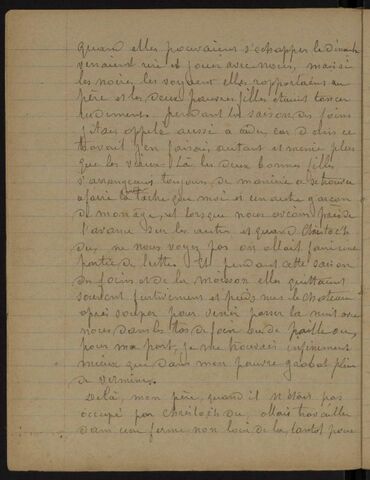 quand elles pouvaient s'echapper le dimanche
venaient rire et jouer avec nous, mais si
les noires les voyaient elles rapportaient au
père et les deux pauvres filles étaient tancer
rudement. pendant la saison des foins
j'étais appelé aussi à aider, car dans ce
travail j'en faisais autant et même plus
que les vieux. Là les deux bonnes filles
s'arrangeaient toujours de manière a se trouver
a faire la tâche que moi et un autre garçon
de mon age, et lorsque nous avions pris de
l'avance sur les autres et quand Christoch
du, ne nous voyez pas on allait faire une
partie de lutte. Et pendant cette saison
du foin et de la moisson elles quittaient
souvent furtivement et pieds nus le chateau
après souper pour venir passer la nuit avec
nous dans les tas de foin ou de paille ou,
pour ma part, je me trouvais infiniment
mieux que dans mon pauvre grabat plein
de vermines.
De là, mon père, quand il n'était pas
occupé par Christoch du, allait travailler
dans une ferme non loin de la, tantot pour